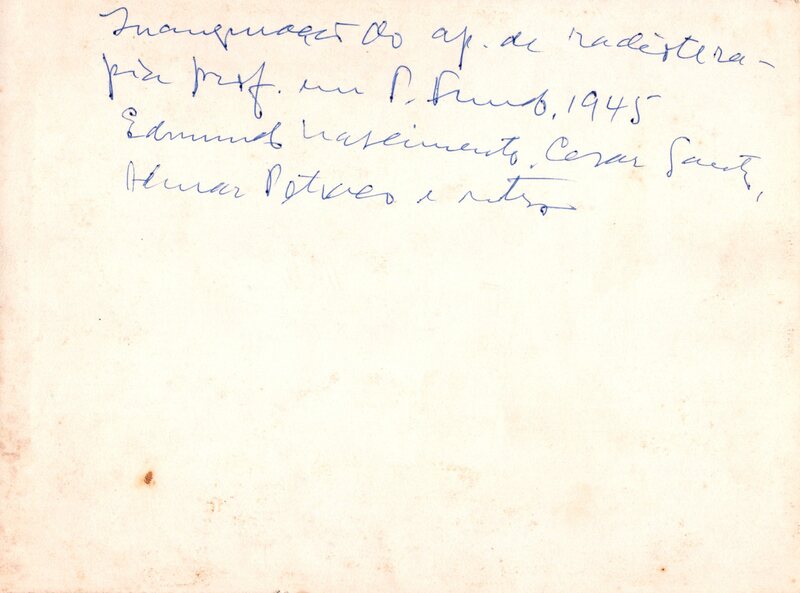 Inauguração do ap. de radiotera-
pia prof. em P. Fundo, 1945
Edmundo Nascimento, Cesar Santos,
e outros